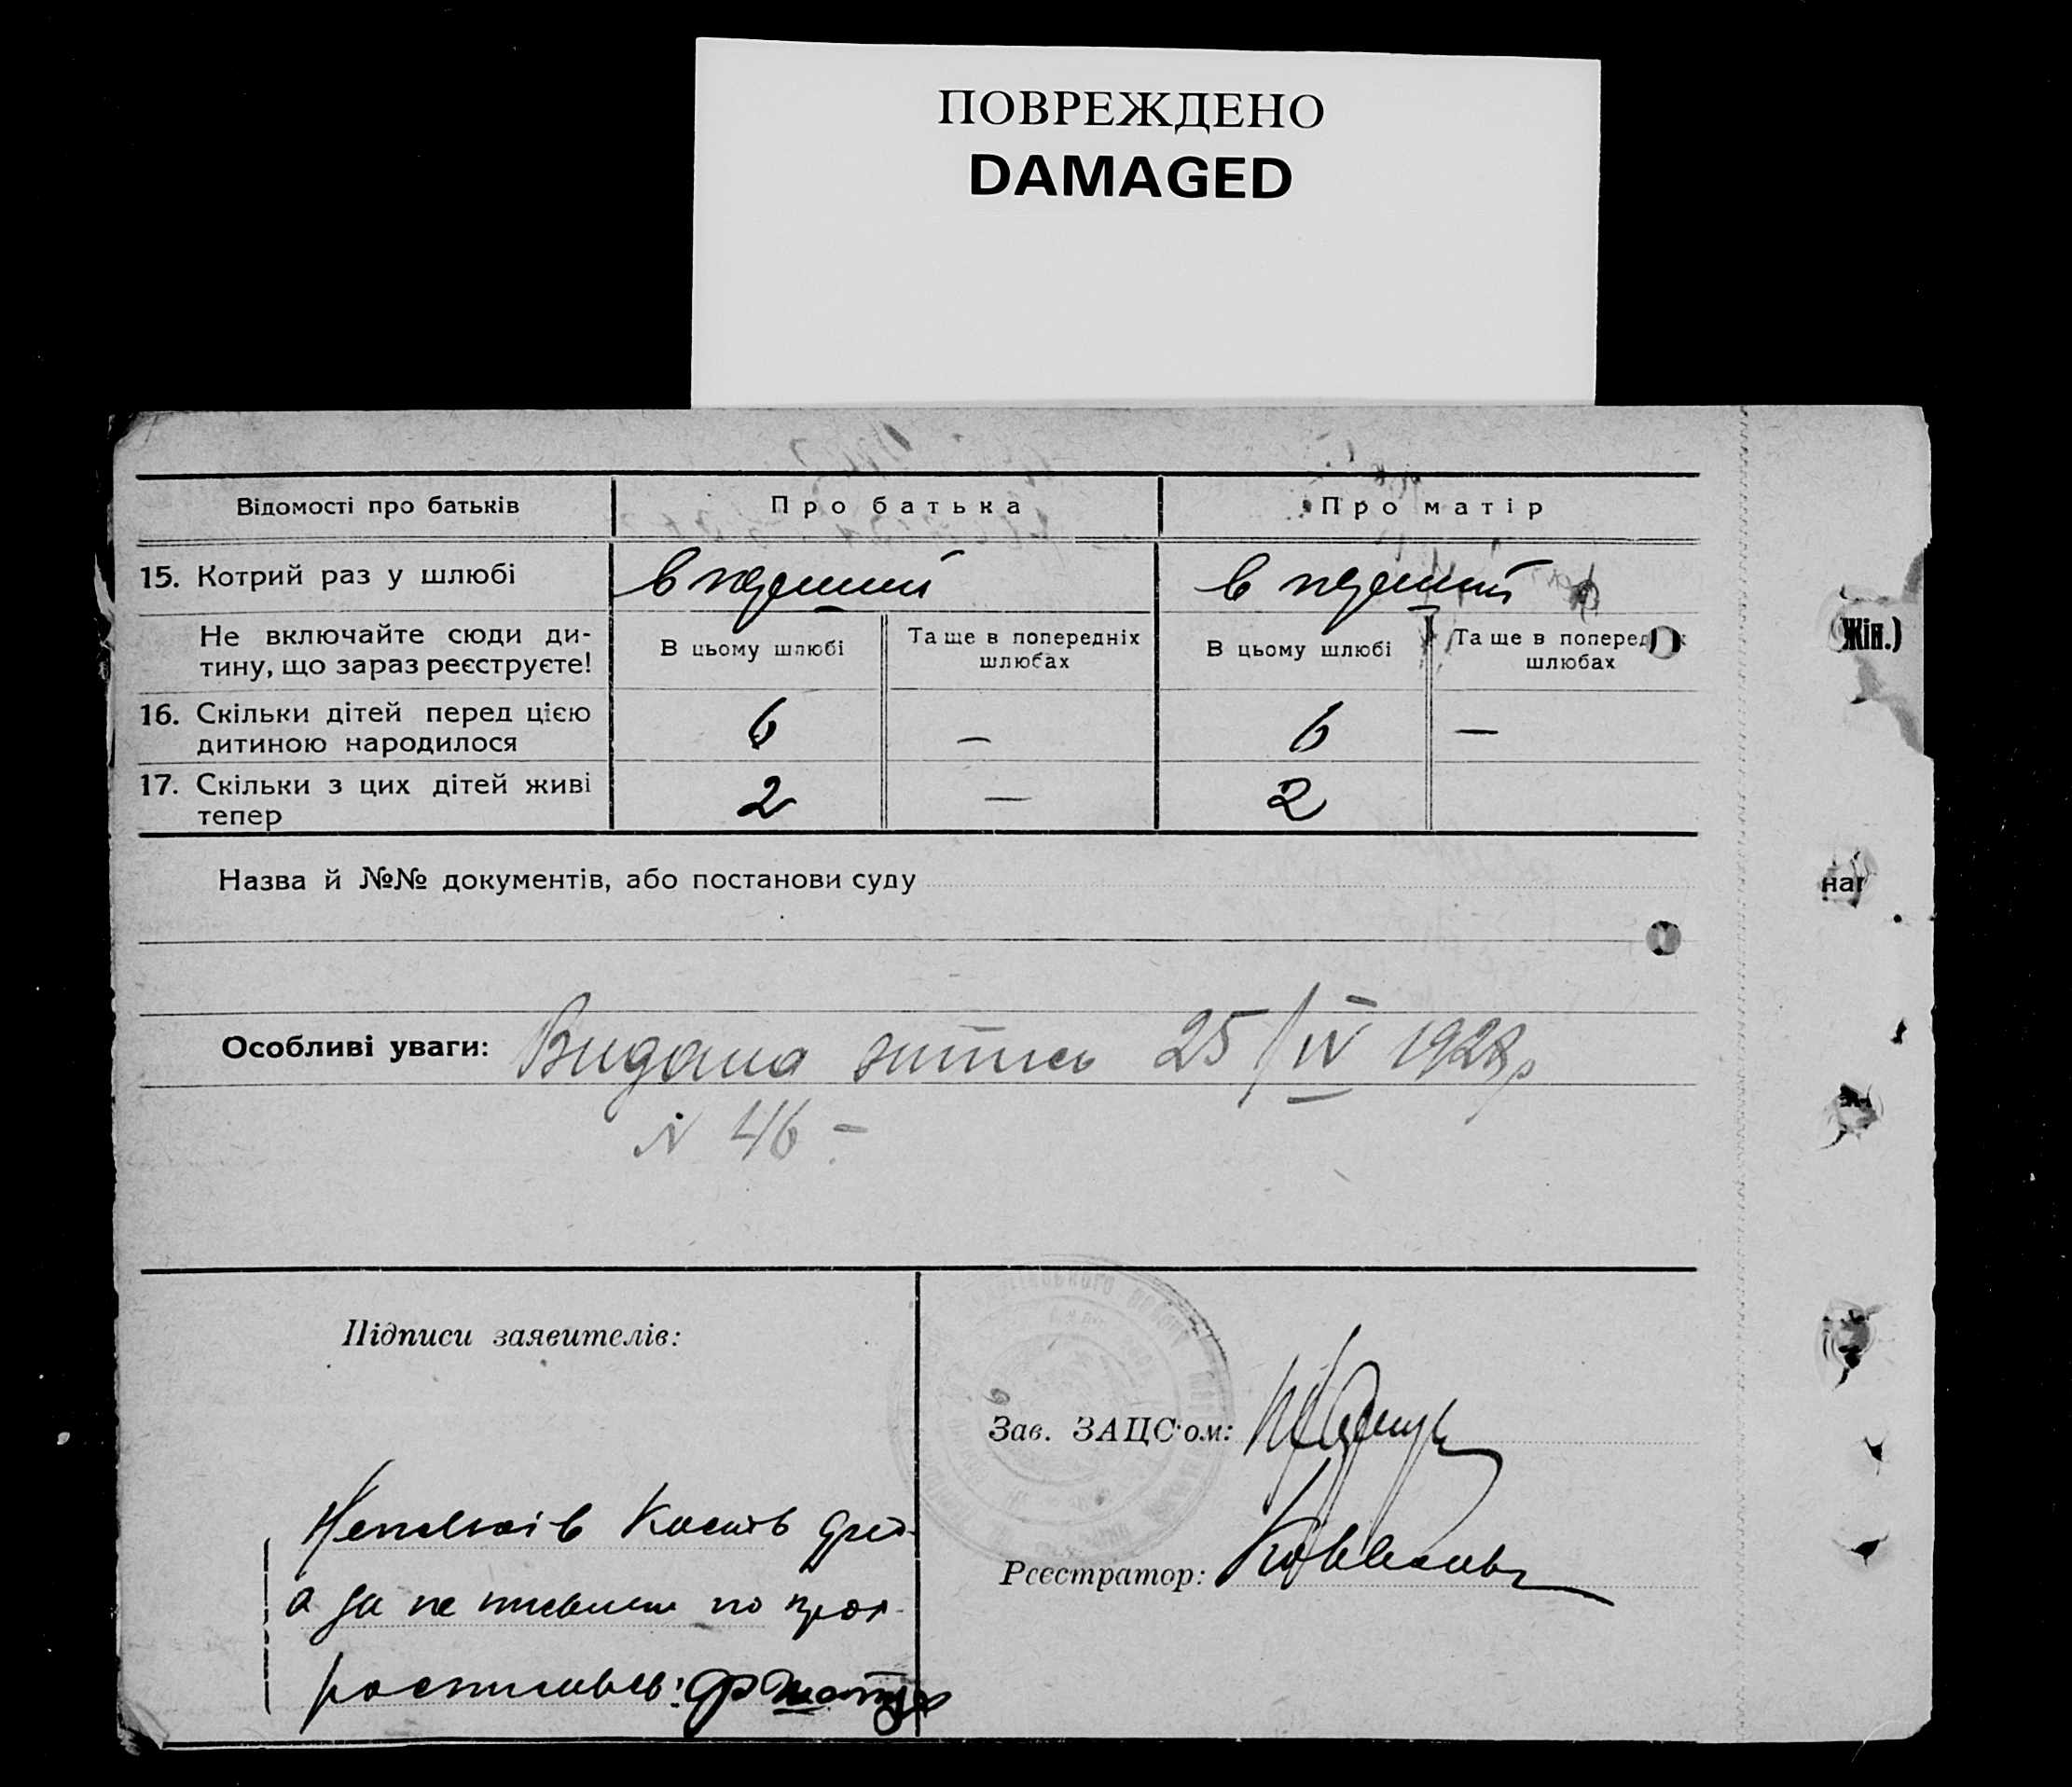 ПОВРЕЖДЕНО
DAMAGED
Відомості про батьків
Про батька
Про матір
15. Котрий раз у шлюбі
в перший
в перший
Не включайте сюди ди-
тину, що зараз реєструєте!
В цьому шлюбі
Та ще в попередніх
шлюбах
В цьому шлюбі
Та ще в поперед х
шлюбах
(Жін.)
16. Скільки дітей перед цією
дитиною народилося
6
—
6
—
17. Скільки з цих дітей живі
тепер
2
—
2
Назва й №№ документів, або постанови суду
наг
Особливі уваги: Видана 25/IV 1928р
N 46 –
Підписи заявителів:
Зав. ЗАЦС'ом:
Кость
а за не по
Реєстратор: